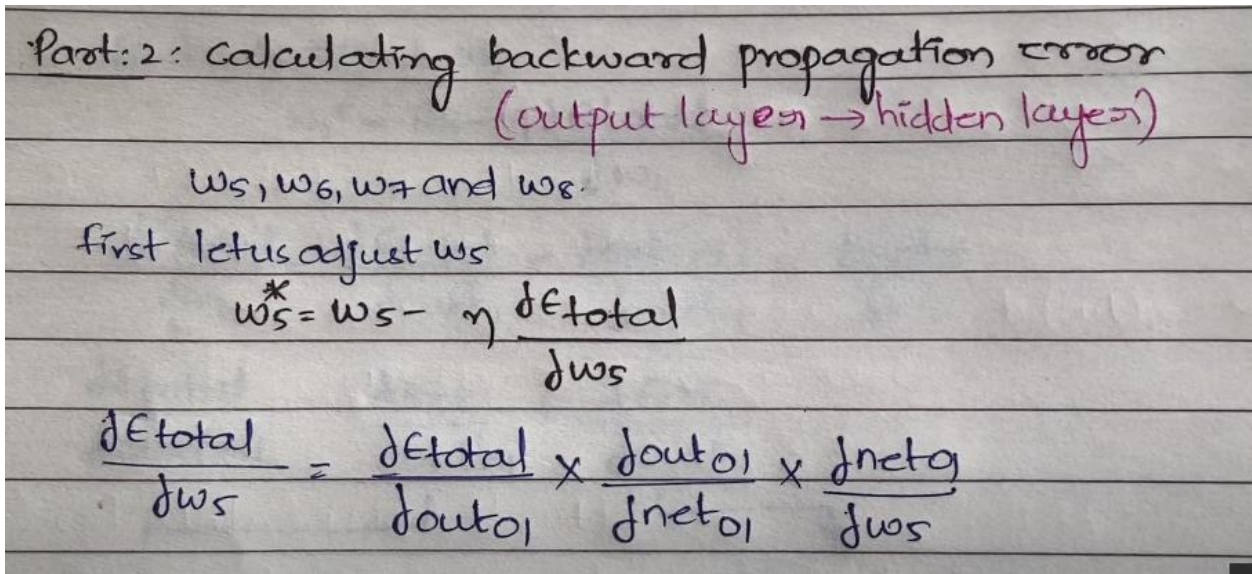 Part: 2: Calculating backward propagation error
(output layer → hidden layer)
w5, w6, w7 and w8.
first let us adjust w5
w5* = w5 - η ∂Etotal / ∂w5
∂Etotal / ∂w5 = ∂Etotal / ∂outo1 × ∂outo1 / ∂neto1 × ∂neto1 / ∂w5